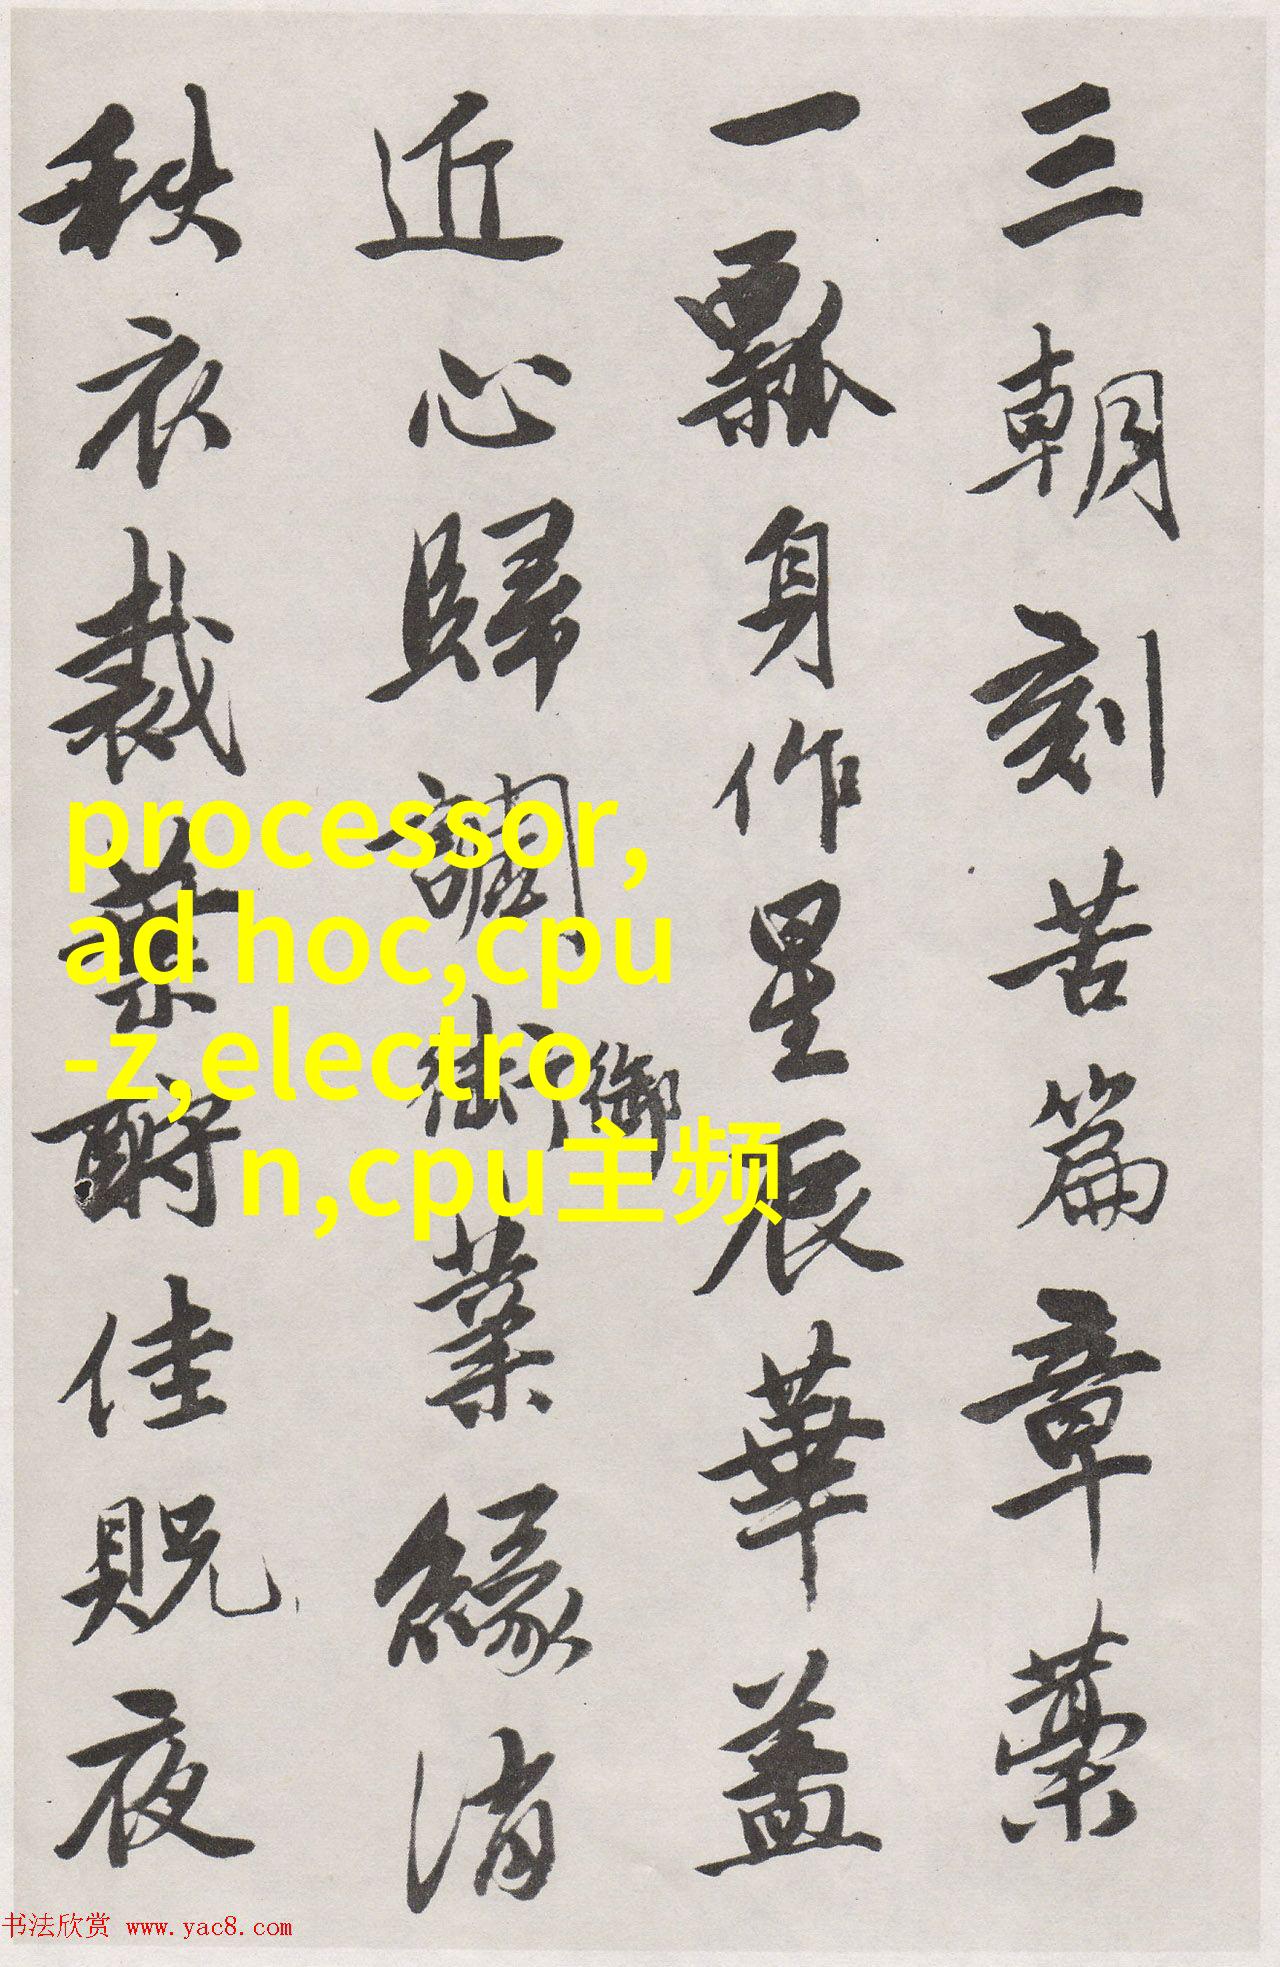 三朝刻苦篇章藁
一瓢身作星辰華蓋
近心歸調御業緣消
秋衣裁葉酬佳貺夜
processor,
ad hoc,cpu
-z,electro
n,cpu主频
书法欣赏 www.yac8.com